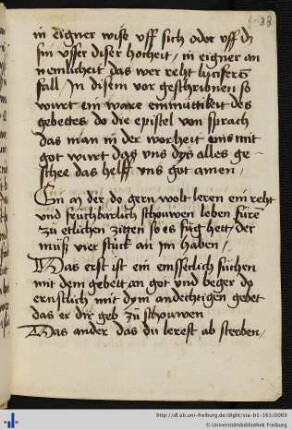 33
in eigner wise vff sich oder vff dz
sin vsser diser hocheit / in eigner an
nemlicheit das wer reht lucifers
fall In disem vor geschribnen so
wurt ein ware einmuttikeit des
gebettes do die epistel von sprach
das man in der worheit eins mit
got wirt das vns dys alles ge-
schee das helff vns got amen /
Ein der do gern wolt leren ein reht
vnd fruchbarlich schouwen leben füre
zü etlichen zitten so es füg hett der
müß vier stück an im haben /
Das erst ist ein emsseclich süchen
mit dem gebett an got vnd beger do
ernstlich mit dym andechtigen gebet
das er dir geb zü schouwen
Das ander das du lerest ab sterben /
http://dl.ub.uni-freiburg.de/diglit/
© Universitätsbibliothek Freiburg